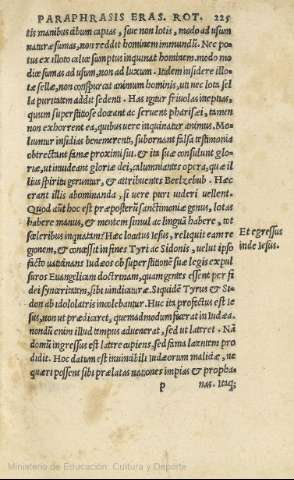 PARAPHRASIS ERAS. ROT. 225
tis manibus cibum capias, siue non lotis, modo ad usum
naturæ sumas, non reddit hominem immundū. Nec po=
tus ex illoto calice sumptus inquinat hominem, modo mo
dicæ sumas ad usum, non ad luxum. Itidem insidere illo=
tæ sellæ, non conspurcat animum hominis, ut nec lota sel
la puritatem addit sedenti. Has igitur friuolas ineptias,
quum superstitiose doceant ac seruent pharisæi, tamen
non exhorrent ea, quibus uere inquinatur animus. Mo=
liuntur insidias benemerenti, subornant falsa testimonia
obtrectant famæ proximi sui, & ita suæ consulunt glo=
riæ, ut inuideant gloriæ dei, calumniantes opera, quæ il
lius spiritu geruntur, & attribuentes Beelzebub. Hæc
erant illis abominanda, si uere puri uideri uellent.
Quod aūt hoc est præposterū sanctimoniæ genus, lotas
habere manus, & mentem simul ac linguā habere, tot
sceleribus inquinatas? Hæc loquutus Iesus, reliquit eam re
gionem, & concessit in fines Tyri ac Sidonis, uelut ipso
facto uaticinans Iudæos ob superstitionē suæ legis expul
suros Euangelicam doctrinam, quam gentes essent per fi
dei synceritatem, sibi uindicaturæ. Siquidē Tyrus & Si=
don ab idololatris incolebantur. Huc ita profectus est Ie
sus, non ut prædicaret, quemadmodum fecerat in Iudæa,
nondū enim illud tempus aduenerat, sed ut lateret. Nā
domū ingressus est latere cupiens, sed fama latentem pro
didit. Hoc datum est inuincibili iudæorum malitiæ, ne
quæri possent sibi prælatas nationes impias & propha
p nas. Itaq;
Et egressus
inde Iesus.
Ministerio de Educación, Cultura y Deporte